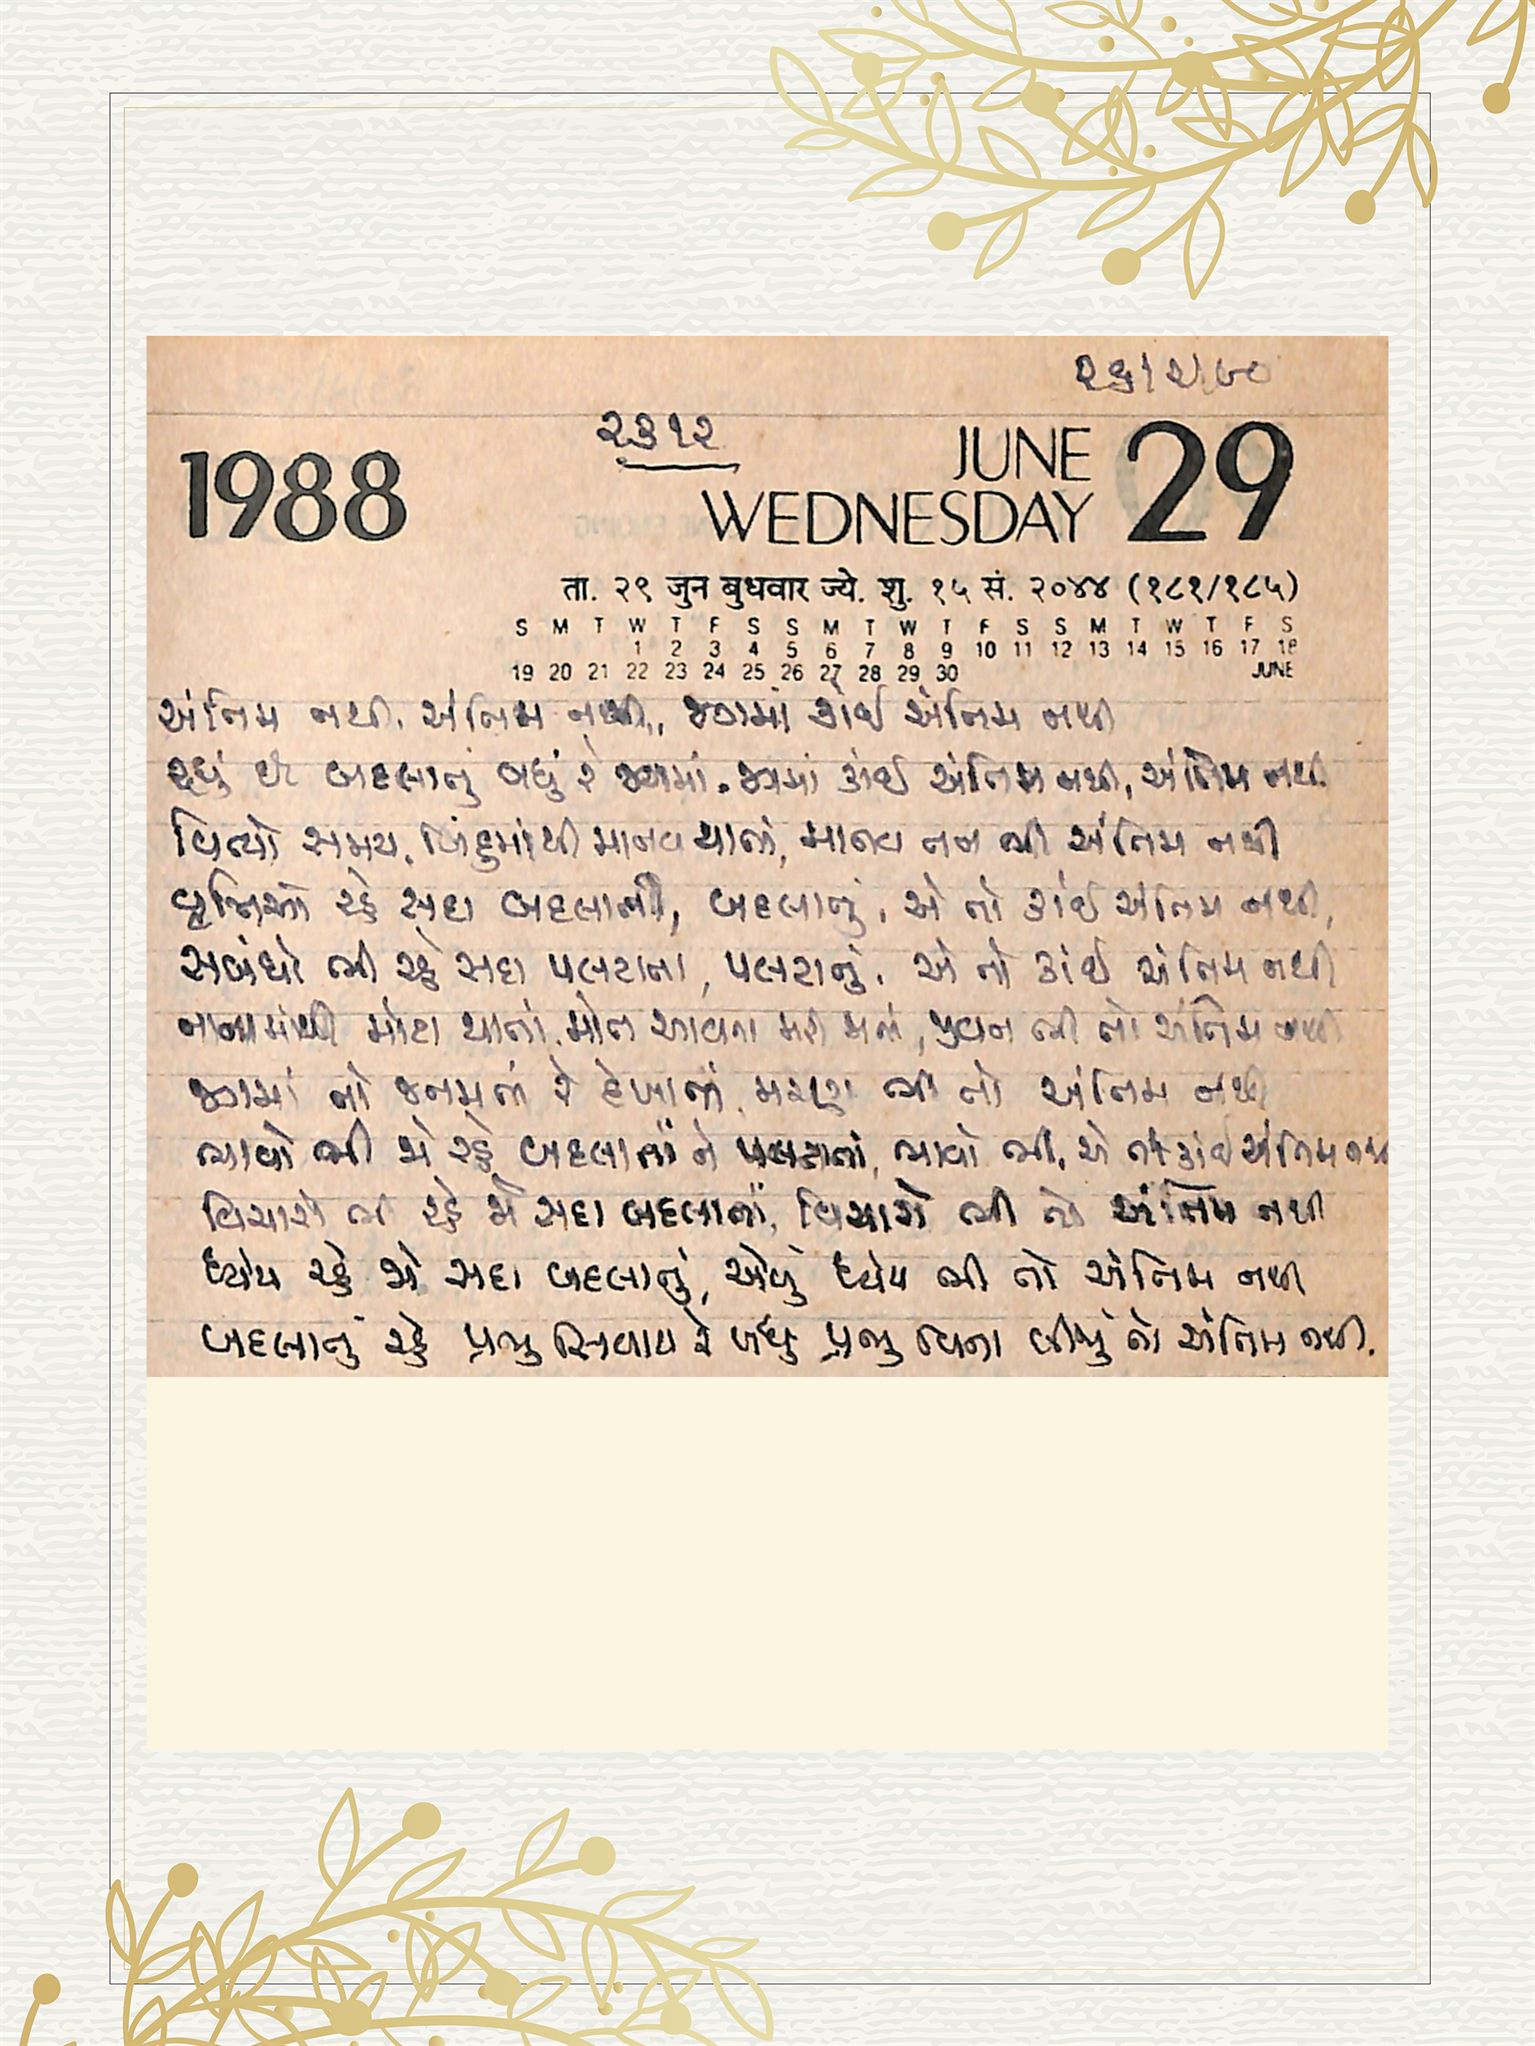 ૨૩૧૨
1988
JUNE
WEDNESDAY 29
ता. २९ जुन बुधवार ज्ये. शु. १५ सं. २०४४ (१८१/१८५)
S M T W T F S S M T W T F S S M T W T F S
1 2 3 4 5 6 7 8 9 10 11 12 13 14 15 16 17 18
19 20 21 22 23 24 25 26 27 28 29 30 JUNE
અંતિમ નથી, અંતિમ નથી, જગમાં કાંઈ અંતિમ નથી
રહ્યું છે બદલાતું બધું રે જગમાં, જગમાં કાંઈ અંતિમ નથી, અંતિમ નથી
વિત્યો સમય, બિંદુમાંથી માનવ થાતાં, માનવ તન ભી અંતિમ નથી
વૃત્તિઓ રહે સદા બદલાતી, બદલાતું, એ તો કાંઈ અંતિમ નથી,
સબંધો ભી રહે સદા પલટાતા, પલટાતું, એ તો કાંઈ અંતિમ નથી
નાનામાંથી મોટા થાતાં, મોત આવતા મરી જાતાં, જીવન ભી તો અંતિમ નથી
જગમાં તો જનમતાં રે દેખાતાં, મરણ ભી તો અંતિમ નથી
ભાવો ભી જે રહે બદલાતાં ને પલટાતાં, ભાવો ભી, એ કાંઈ અંતિમ નથી
વિચારો ભી રહે જે સદા બદલાતાં, વિચારો ભી તો અંતિમ નથી
ધ્યેય રહે જે સદા બદલાતું, એવું ધ્યેય ભી તો અંતિમ નથી
બદલાતું રહે પ્રભુ સિવાય રે બધું પ્રભુ વિના બીજું તો અંતિમ નથી.